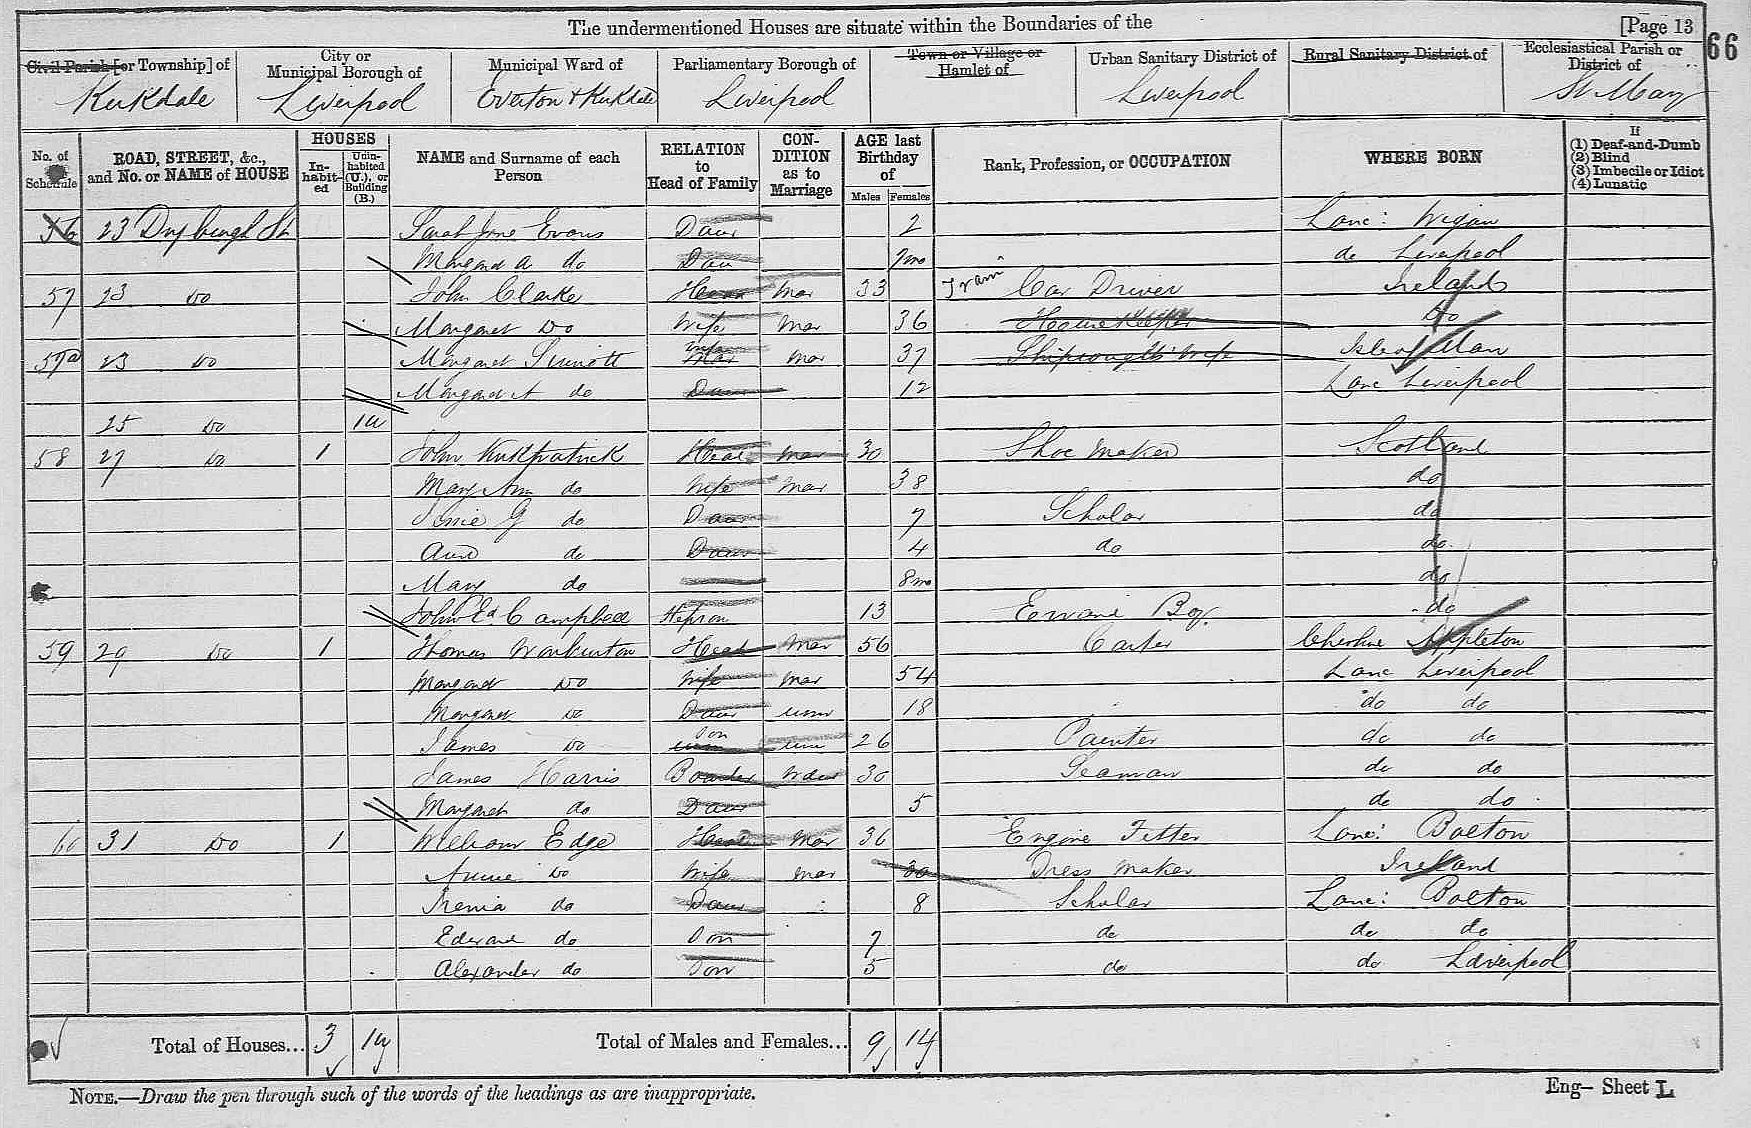 The undermentioned Houses are situate within the Boundaries of the
[Page 13
66
Civil Parish [or Township] of
City or Municipal Borough of
Municipal Ward of
Parliamentary Borough of
Town or Village or Hamlet of
Urban Sanitary District of
Rural Sanitary District of
Ecclesiastical Parish or District of
Kirkdale Liverpool Everton & Kirkdale Liverpool Liverpool St Mary
No. of Schedule
ROAD, STREET, &c., and No. or NAME of HOUSE
HOUSES
In-habit-ed
Unin-habited (U.), or Building (B.)
NAME and Surname of each Person
RELATION to Head of Family
CON-DITION as to Marriage
AGE last Birthday of
Males Females
Rank, Profession, or OCCUPATION
WHERE BORN
If
(1) Deaf-and-Dumb
(2) Blind
(3) Imbecile or Idiot
(4) Lunatic
56 23 St Sarah Jane Evans Daur 2 Lanc: Wigan
Margaret A do Dau 7mo do Liverpool
57 23 Do John Clarke Head Mar 33 Tram Car Driver Ireland
Margaret Do Wife Mar 36 Housekeeper Do
57a 23 Do Margaret Wife Mar 37 Shipwrights Wife Isle of Man
Margaret A do Daur 12 Lanc Liverpool
25 Do 1u
58 27 Do 1 John Kirkpatrick Head Mar 30 Shoe Maker Scotland
Mary Ann do Wife Mar 38 do
G do Daur 7 Scholar do
do Daur 4 do do
Mary do 8mo do
John Ed Campbell Stepson 13 Errand Boy do
59 29 Do 1 Thomas Warburton Head Mar 56 Carter Cheshire Appleton
Margaret Do Wife Mar 54 Lanc Liverpool
Margaret Do Daur unm 18 do do
James Do Son unm 26 Painter do do
James Harris Boarder Widr 30 Seaman do do
Margaret do Daur 5 do do
60 31 Do 1 William Edge Head Mar 36 Engine Fitter Lanc: Bolton
Annie Do Wife Mar 30 Dress Maker Ireland
do Daur 8 Scholar Lanc: Bolton
Edward do Son 7 do do do
Alexander do Son 5 do do Liverpool
Total of Houses... 3 1u Total of Males and Females... 9 14
NOTE.—Draw the pen through such of the words of the headings as are inappropriate.
Eng— Sheet L